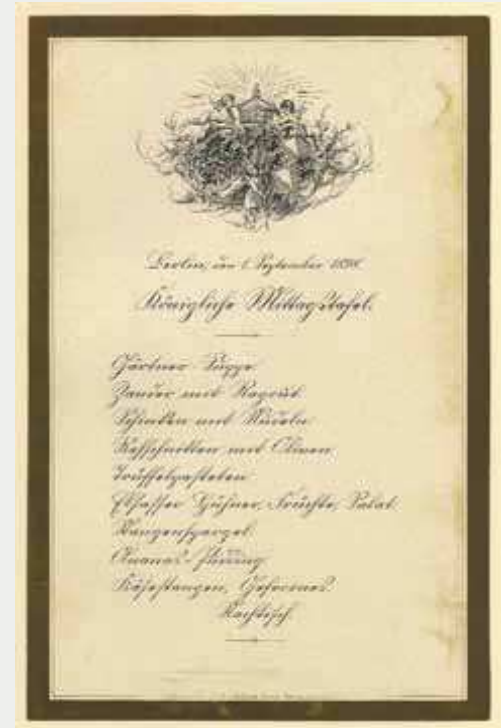 Berlin, den 1. September 1898.
Königliche Mittagstafel.
Gärtner Suppe
Zander mit Ragout
Schinken mit Nudeln
Rehschnitten mit Oliven
Trüffelpasteten
Elsasser Hühner, Früchte, Salat
Stangenspargel
Ananas-Pudding
Käsestangen, Gefrornes
Nachtisch